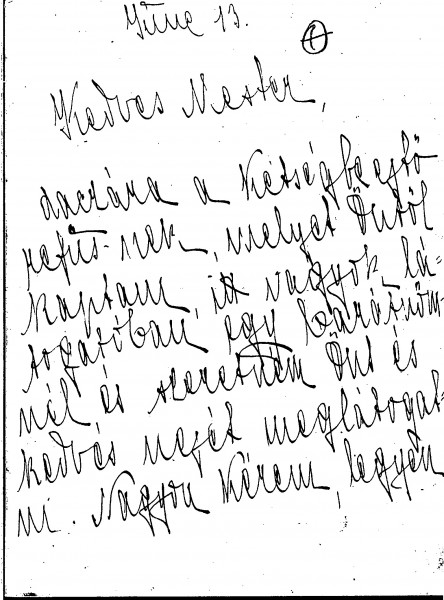 June 13.
1
Kedves Mester,
daczára a kétségbeejtő
refüs-nek, melyet Öntől
kaptam, itt vagyok, lá-
togatóban egy barátnőm
nél, és szeretném Önt és
kedves nejét meglátogat-
ni. Nagyon kérem, legyen